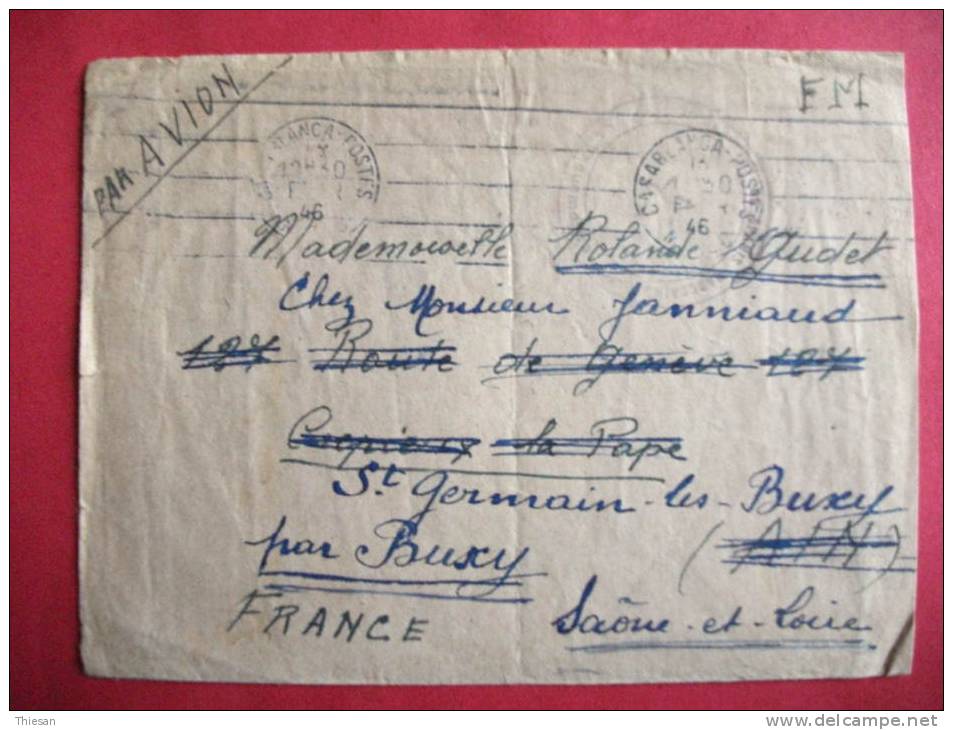 PAR AVION
FM
CASABLANCA-POSTES
46
CASABLANCA-POSTES
46
Mademoiselle Rolande Gudet
Chez Monsieur Janniaud
127 Route de Genève 127
la Pape
St Germain-les-Buxy
par Buxy
(AIN)
FRANCE
Saône-et-Loire
Thiesan
delcampe.net